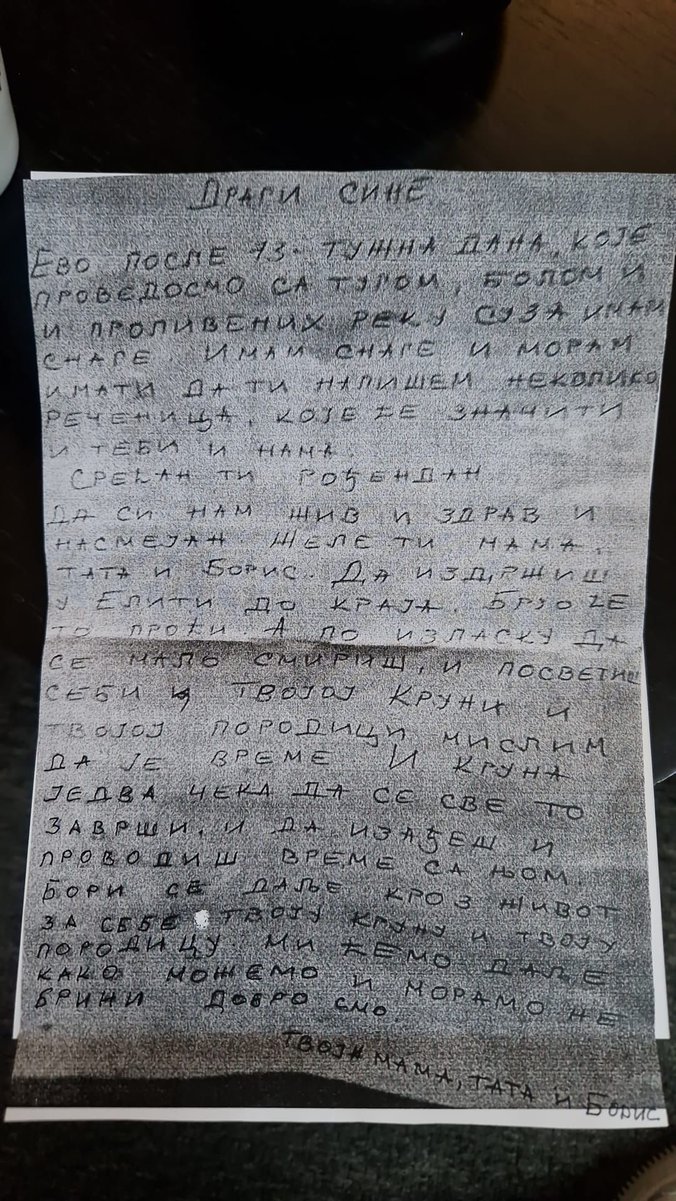 ДРАГИ СИНЕ
ЕВО ПОСЛЕ 13- ТУЖНА ДАНА, КОЈЕ
ПРОВЕДОСМО СА ТУГОМ, БОЛОМ И
И ПРОЛИВЕНИХ РЕКУ СУЗА ИМАМ
СНАГЕ. ИМАМ СНАГЕ И МОРАМ
ИМАТИ ДА ТИ НАПИШЕМ НЕКОЛИКО
РЕЧЕНИЦА, КОЈЕ ЋЕ ЗНАЧИТИ
И ТЕБИ И НАМА.
СРЕЋАН ТИ РОЂЕНДАН
ДА СИ НАМ ЖИВ И ЗДРАВ И
НАСМЕЈАН ЖЕЛЕ ТИ МАМА,
ТАТА И БОРИС. ДА ИЗДРЖИШ
У ЕЛИТИ ДО КРАЈА. БРЗО ЋЕ
ТО ПРОЋИ. А ПО ИЗЛАСКУ ДА
СЕ МАЛО СМИРИШ, И ПОСВЕТИШ
СЕБИ И ТВОЈОЈ КРУНИ И
ТВОЈОЈ ПОРОДИЦИ МИСЛИМ
ДА ЈЕ ВРЕМЕ И КРУНА
ЈЕДВА ЧЕКА ДА СЕ СВЕ ТО
ЗАВРШИ, И ДА ИЗАЂЕШ И
ПРОВОДИШ ВРЕМЕ СА ЊОМ.
БОРИ СЕ ДАЉЕ КРОЗ ЖИВОТ
ЗА СЕБЕ ТВОЈУ КРУНУ И ТВОЈУ
ПОРОДИЦУ МИ ЋЕМО ДАЉЕ
КАКО МОЖЕМО И МОРАМО НЕ
БРИНИ ДОБРО СМО.
ТВОЈИ МАМА, ТАТА И БОРИС